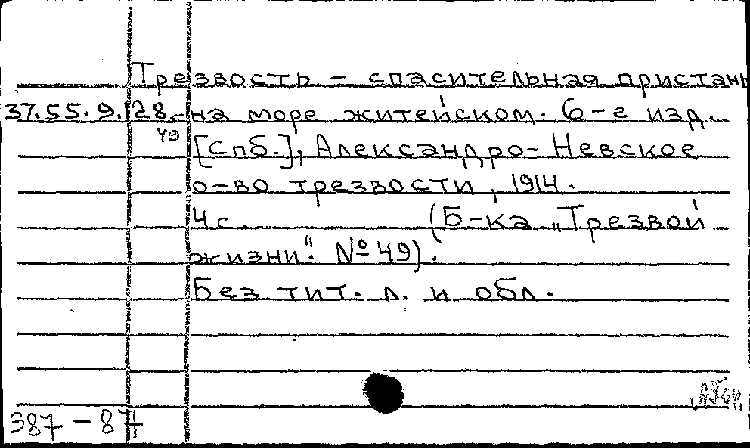 Трезвость – спасительная пристань
37.55.9.128. на море житейском. 6-е изд.
49
[Спб.], Александро-Невское
о-во трезвости, 1914.
4 с. (Б-ка „Трезвой
жизни". № 49).
Без тит. л. и обл.
387 – 87